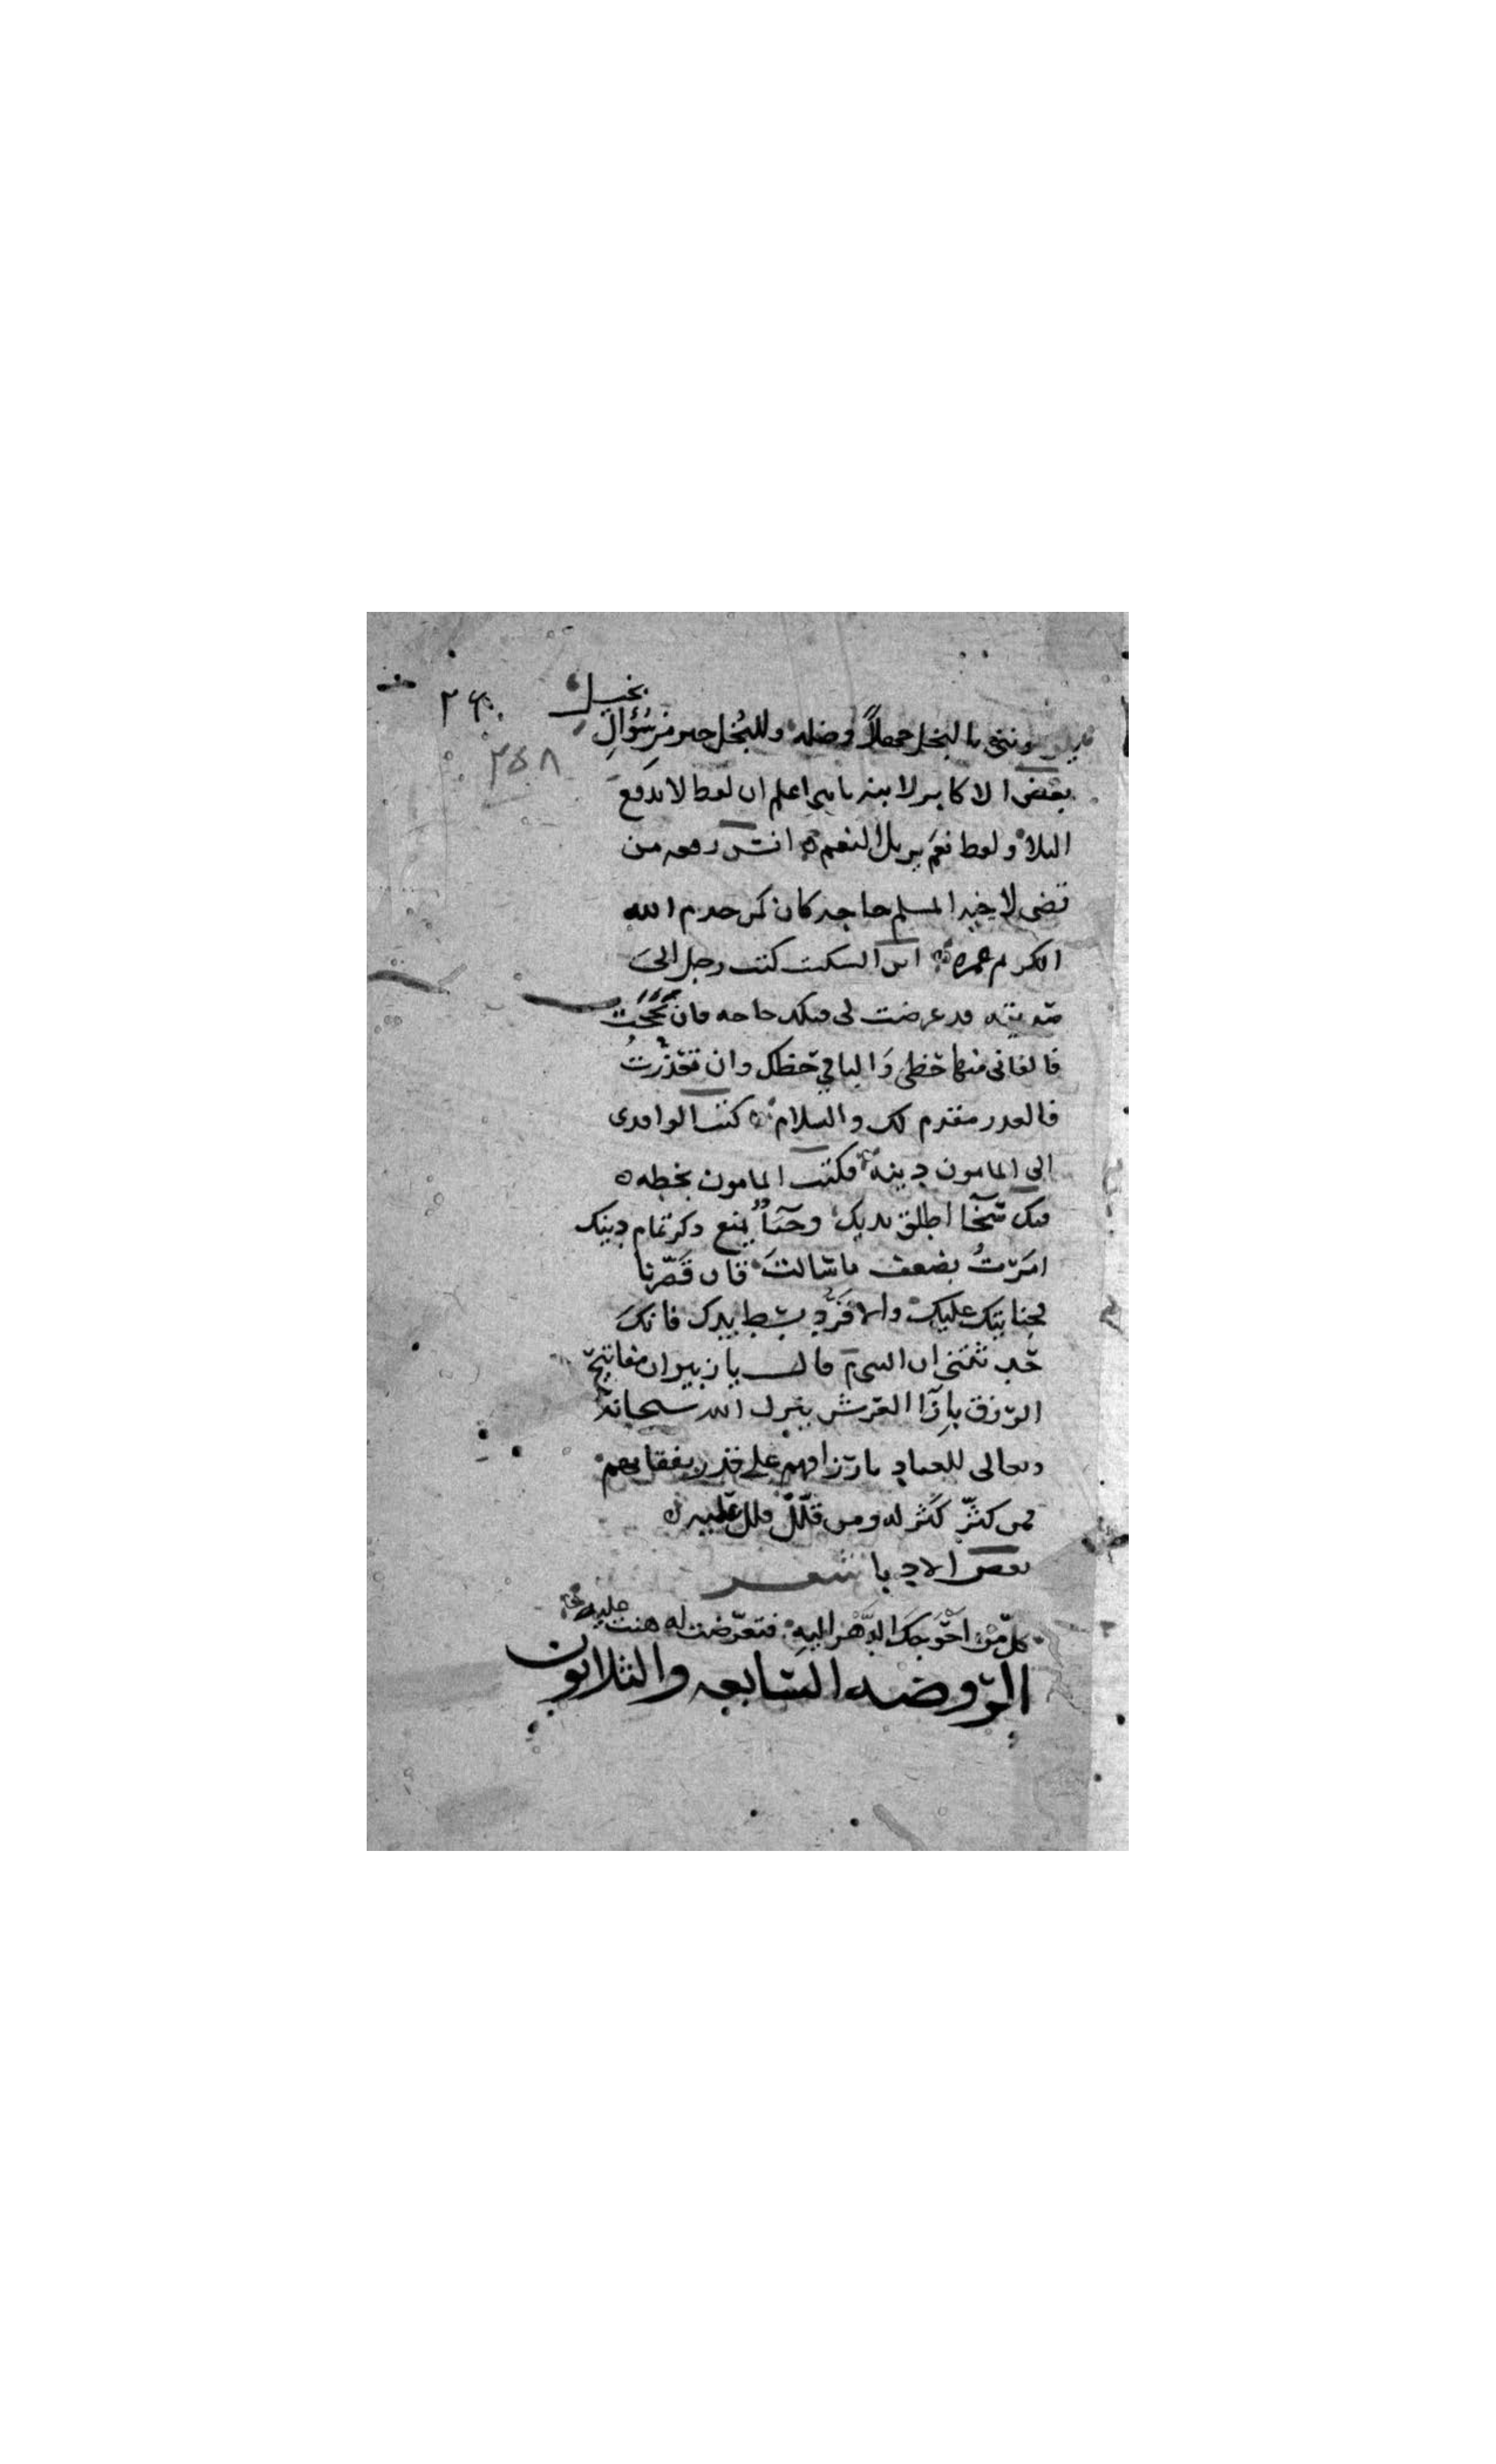 بخيل
ونتقي بالبخل جهلا وضله وللبخل خير من سؤال
٢٦٠
٢٥٨
بعض الاكابر لابنه يا بني اعلم ان لفظ لا يدفع
البلا ولفظ نعم يزيل النعم ه انس رفعه من
قضى لاخيه المسلم حاجه كان كمن خدم الله
الكريم عمره ه ابن السكيت كتب رجل الى
صديقه قد عرضت لي قبلك حاجه فان نجحت
فالفاني منها حظي والباقي حظك وان تعذرت
فالعذر مقدم لك والسلام ه كتب الواقدي
الى المامون دينه فكتب المامون بخطه ه
فيك سخا اطلق يديك وحيا يمنع ذكر تمام دينك
امرت بضعف ما سالت فان قصرنا
لجنايتك عليك والا فزد بسط يدك فانك
حدثتني ان النبي م قال يا زبير ان مفاتيح
الرزق بازا العرش ينزل الله سبحانه
وتعالى للعباد بارزاقهم على قدر نفقاتهم
فمن كثر كثر له ومن قلل قلل عليه ه
بعض الادبا شعر
كل من احوجك الدهر اليه فتعرضت له هنت عليه
الروضه السابعه والثلاثون